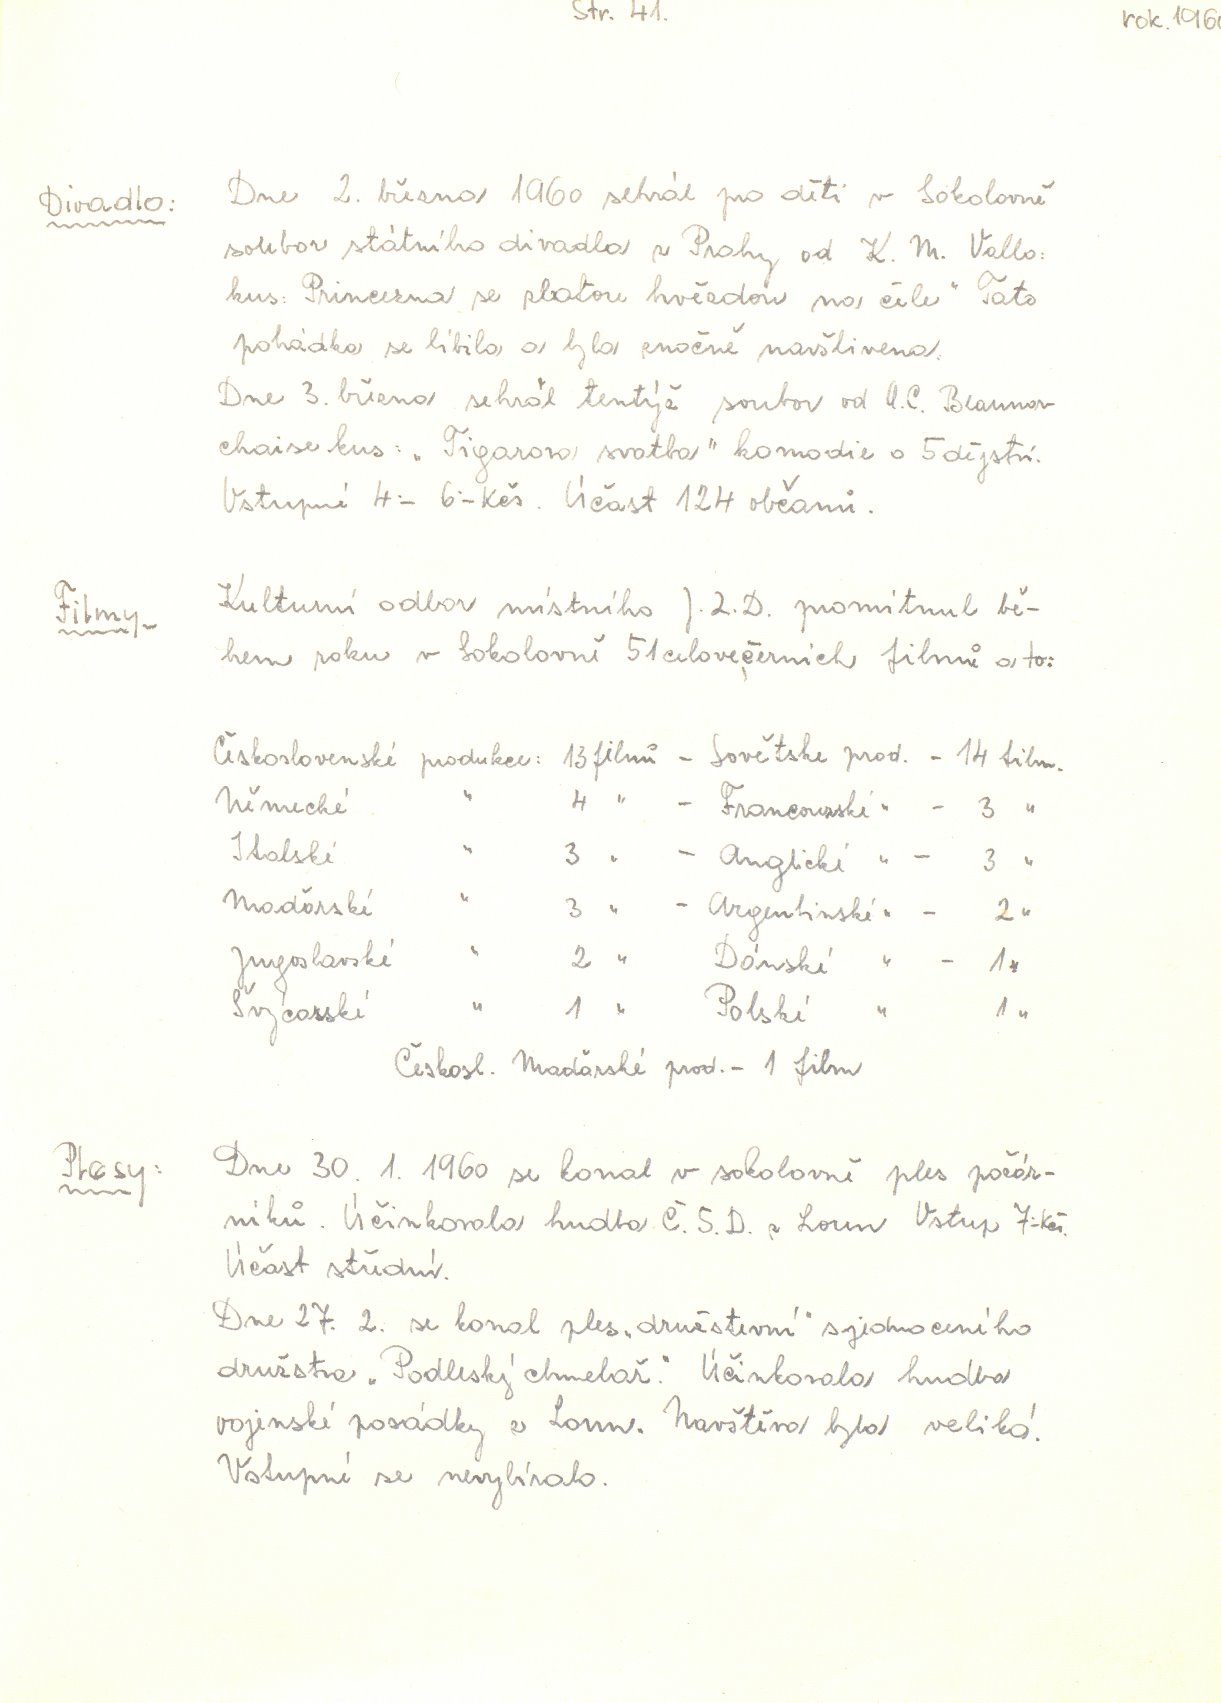 Str. 41.
rok. 196
Divadlo: Dne 2. března 1960 sehrál pro děti v Sokolovně
soubor státního divadla z Prahy od K. M. Vallo:
kus: Princezna se zlatou hvězdou na čele" Tato
pohádka se líbila a byla značně navštívena.
Dne 3. března sehrál tentýž soubor od A.C. Beaumar-
chaise kus: „Figarova svatba" komodie o 5 dějství.
Vstupné 4:- 6:- Kčs. Účast 124 občanů.
Filmy- Kulturní odbor místního J.Z.D. promítnul bě-
hem roku v Sokolovně 51 celovečerních filmů a to:
Československé produkce: 13 filmů - Sovětske prod. - 14 film.
Německé " 4 " - Francouzské " - 3 "
Italské " 3 " - Anglické " - 3 "
Maďarské " 3 " - Argentinské " - 2 "
Jugoslavské " 2 " Dánské " - 1 "
Švýcarské " 1 " Polské " 1 "
Českosl. Maďarské prod. - 1 film
Plesy: Dne 30. 1. 1960 se konal v sokolovně ples požár-
níků. Účinkovala hudba Č.S.D. z Loun Vstup 7:- Kčs.
Účast střední.
Dne 27. 2. se konal ples „družstevní" sjednoceného
družstva „Podleský chmelař." Účinkovala hudba
vojenské posádky z Loun. Navštěva byla veliká.
Vstupné se nevybíralo.